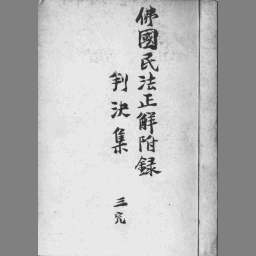 佛國民法正解附録
判決集
三完